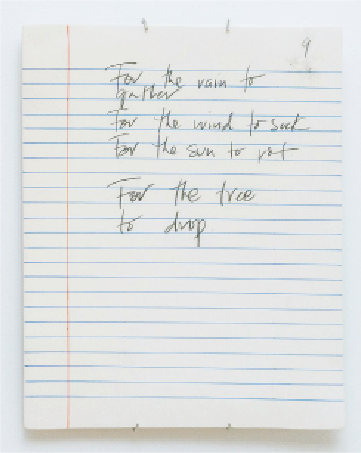 9
For the rain to
gather
For the wind to suck
For the sun to rot
For the tree
to drop